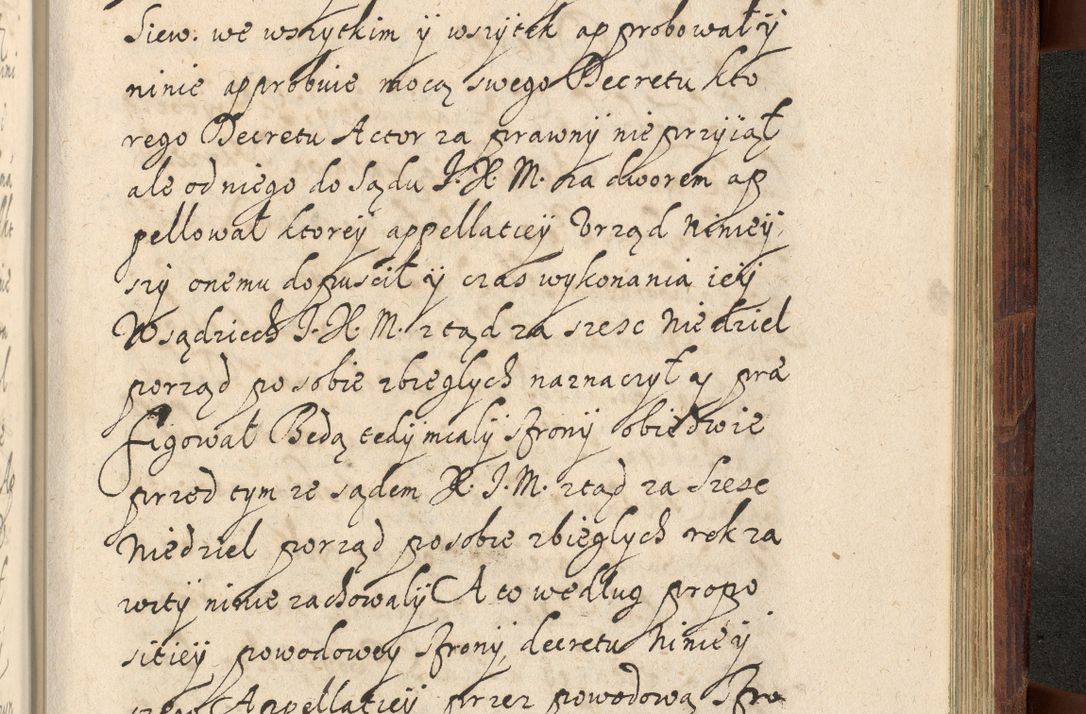 Siew: we wszytkim y wszytek approbował y
ninie approbuie mocą swego Decretu kto
rego Decretu Actor za prawny nie przyiął
ale od niego do Sądu J. X. M. za dworem ap
pellował ktorey appellatiey Vrząd Niniey
szy onemu dopuscił y czas wykonania iey
W sądziech J. X. M. ztąd za szesc Niedziel
porząd po sobie zbieglych naznaczył y prae
figował Będą tedy mialy strony obiedwie
przed tym ze sądem X. J. M. ztąd za Szesc
Niedziel porząd po sobie zbieglych rok za
wity ninie zachowaly A to według propo
sitiey powodowey strony decretu Niniey
szego Appellatiey przez powodową Stro